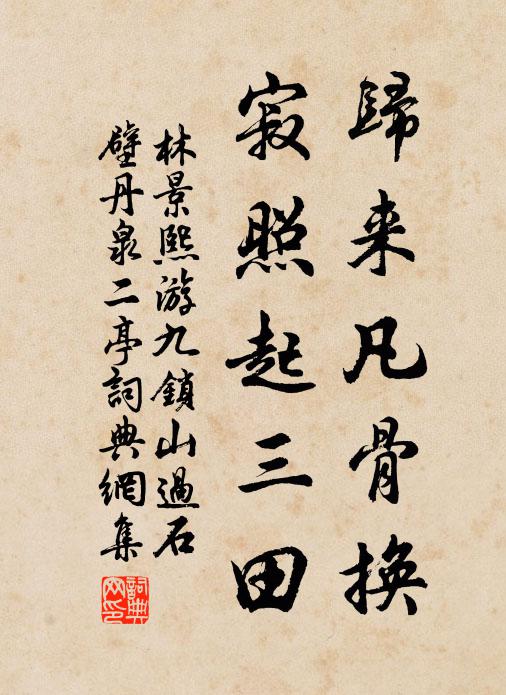 歸来凡骨換
寂照起三田
林景熙游九鎖山過石
壁丹泉二亭詞典網集
詞典網印